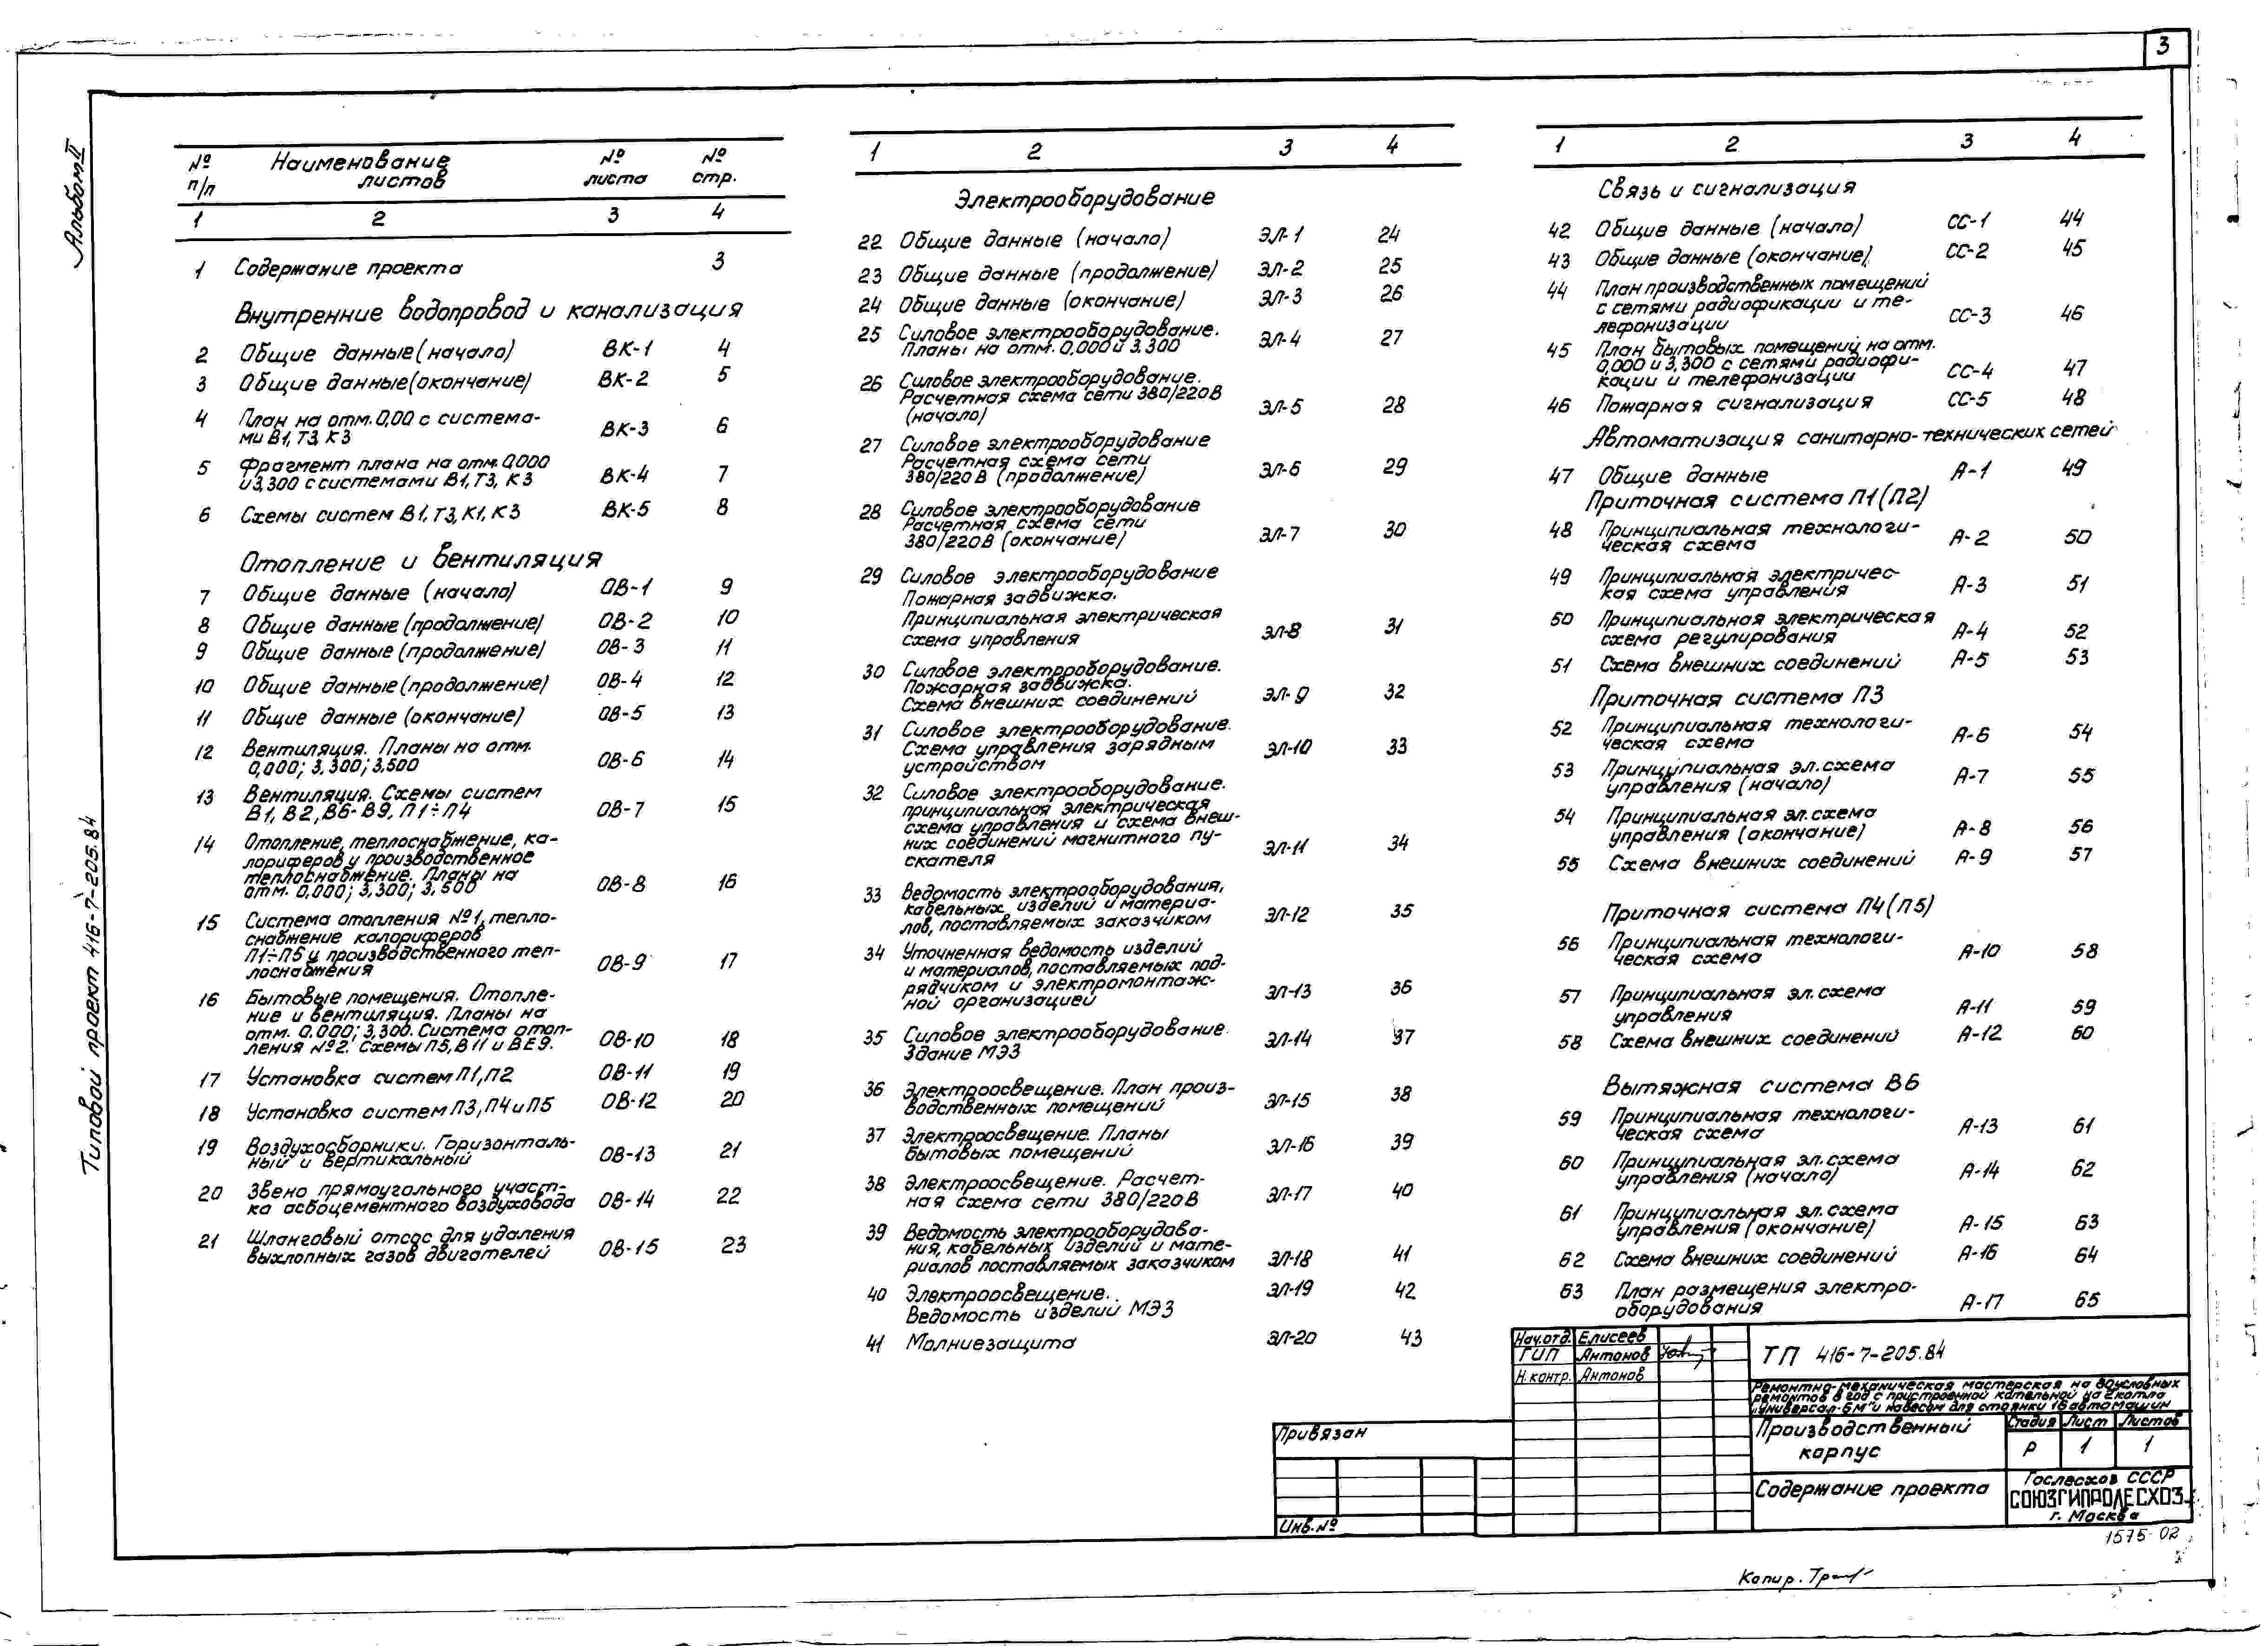 3
Альбом II
Типовой проект 416-7-205.84
№ п/п
Наименование листов
№ листа
№ стр.
1 2 3 4
1 Содержание проекта 3
Внутренние водопровод и канализация
2 Общие данные (начало) ВК-1 4
3 Общие данные (окончание) ВК-2 5
4 План на отм. 0,00 с система-
ми В1, Т3, К3 ВК-3 6
5 Фрагмент плана на отм. 0,000
и 3,300 с системами В1, Т3, К3 ВК-4 7
6 Схемы систем В1, Т3, К1, К3 ВК-5 8
Отопление и вентиляция
7 Общие данные (начало) ОВ-1 9
8 Общие данные (продолжение) ОВ-2 10
9 Общие данные (продолжение) ОВ-3 11
10 Общие данные (продолжение) ОВ-4 12
11 Общие данные (окончание) ОВ-5 13
12 Вентиляция. Планы на отм.
0,000; 3,300; 3,500 ОВ-6 14
13 Вентиляция. Схемы систем
В1, В2, В6-В9, П1÷П4 ОВ-7 15
14 Отопление, теплоснабжение, ка-
лориферов у производственное
теплоснабжение. Планы на
отм. 0,000; 3,300; 3,500 ОВ-8 16
15 Система отопления №1, тепло-
снабжение калориферов
П1÷П5 у производственного теп-
лоснабжения ОВ-9 17
16 Бытовые помещения. Отопле-
ние и вентиляция. Планы на
отм. 0,000; 3,300. Система отоп-
ления №2. Схемы П5, В11 и ВЕ9. ОВ-10 18
17 Установка систем П1, П2 ОВ-11 19
18 Установка систем П3, П4 и П5 ОВ-12 20
19 Воздухосборники. Горизонталь-
ный и вертикальный ОВ-13 21
20 Звено прямоугольного участ-
ка асбоцементного воздуховода ОВ-14 22
21 Шланговый отсос для удаления
выхлопных газов двигателей ОВ-15 23
1 2 3 4
Электрооборудование
22 Общие данные (начало) ЭЛ-1 24
23 Общие данные (продолжение) ЭЛ-2 25
24 Общие данные (окончание) ЭЛ-3 26
25 Силовое электрооборудование.
Планы на отм. 0,000 и 3,300 ЭЛ-4 27
26 Силовое электрооборудование.
Расчетная схема сети 380/220В
(начало) ЭЛ-5 28
27 Силовое электрооборудование
Расчетная схема сети
380/220 В (продолжение) ЭЛ-6 29
28 Силовое электрооборудование
Расчетная схема сети
380/220В (окончание) ЭЛ-7 30
29 Силовое электрооборудование
Пожарная задвижка.
Принципиальная электрическая
схема управления ЭЛ-8 31
30 Силовое электрооборудование.
Пожарная задвижка.
Схема внешних соединений ЭЛ-9 32
31 Силовое электрооборудование.
Схема управления зарядным
устройством ЭЛ-10 33
32 Силовое электрооборудование.
принципиальная электрическая
схема управления и схема внеш-
них соединений магнитного пу-
скателя ЭЛ-11 34
33 Ведомость электрооборудования,
кабельных изделий и материа-
лов, поставляемых заказчиком ЭЛ-12 35
34 Уточненная ведомость изделий
и материалов, поставляемых под-
рядчиком и электромонтаж-
ной организацией ЭЛ-13 36
35 Силовое электрооборудование.
Здание МЭЗ ЭЛ-14 37
36 Электроосвещение. План произ-
водственных помещений ЭЛ-15 38
37 Электроосвещение. Планы
бытовых помещений ЭЛ-16 39
38 Электроосвещение. Расчет-
ная схема сети 380/220В ЭЛ-17 40
39 Ведомость электрооборудова-
ния, кабельных изделий и мате-
риалов поставляемых заказчиком ЭЛ-18 41
40 Электроосвещение.
Ведомость изделий МЭЗ ЭЛ-19 42
41 Молниезащита ЭЛ-20 43
1 2 3 4
Связь и сигнализация
42 Общие данные (начало) СС-1 44
43 Общие данные (окончание) СС-2 45
44 План производственных помещений
с сетями радиофикации и те-
лефонизации СС-3 46
45 План бытовых помещений на отм.
0,000 и 3,300 с сетями радиофи-
кации и телефонизации СС-4 47
46 Пожарная сигнализация СС-5 48
Автоматизация санитарно-технических сетей
47 Общие данные А-1 49
Приточная система П1 (П2)
48 Принципиальная технологи-
ческая схема А-2 50
49 Принципиальная электричес-
кая схема управления А-3 51
50 Принципиальная электрическая
схема регулирования А-4 52
51 Схема внешних соединений А-5 53
Приточная система П3
52 Принципиальная технологи-
ческая схема А-6 54
53 Принципиальная эл. схема
управления (начало) А-7 55
54 Принципиальная эл. схема
управления (окончание) А-8 56
55 Схема внешних соединений А-9 57
Приточная система П4 (П5)
56 Принципиальная технологи-
ческая схема А-10 58
57 Принципиальная эл. схема
управления А-11 59
58 Схема внешних соединений А-12 60
Вытяжная система В6
59 Принципиальная технологи-
ческая схема А-13 61
60 Принципиальная эл. схема
управления (начало) А-14 62
61 Принципиальная эл. схема
управления (окончание) А-15 63
62 Схема внешних соединений А-16 64
63 План размещения электро-
оборудования А-17 65
Нач.отд. Елисеев
ГИП Антонов
Н.контр. Антонов
ТП 416-7-205.84
Ремонтно-механическая мастерская на 80условных
ремонтов в год с пристроенной котельной на 2 котла
„Универсал-6М" и навесом для стоянки 16 автомашин
Производственный
корпус
Стадия Лист Листов
Р 1 1
Содержание проекта
Гослесхоз СССР
СОЮЗГИПРОЛЕСХОЗ
г. Москва
Привязан
Инв. №
1575-02
Копир.